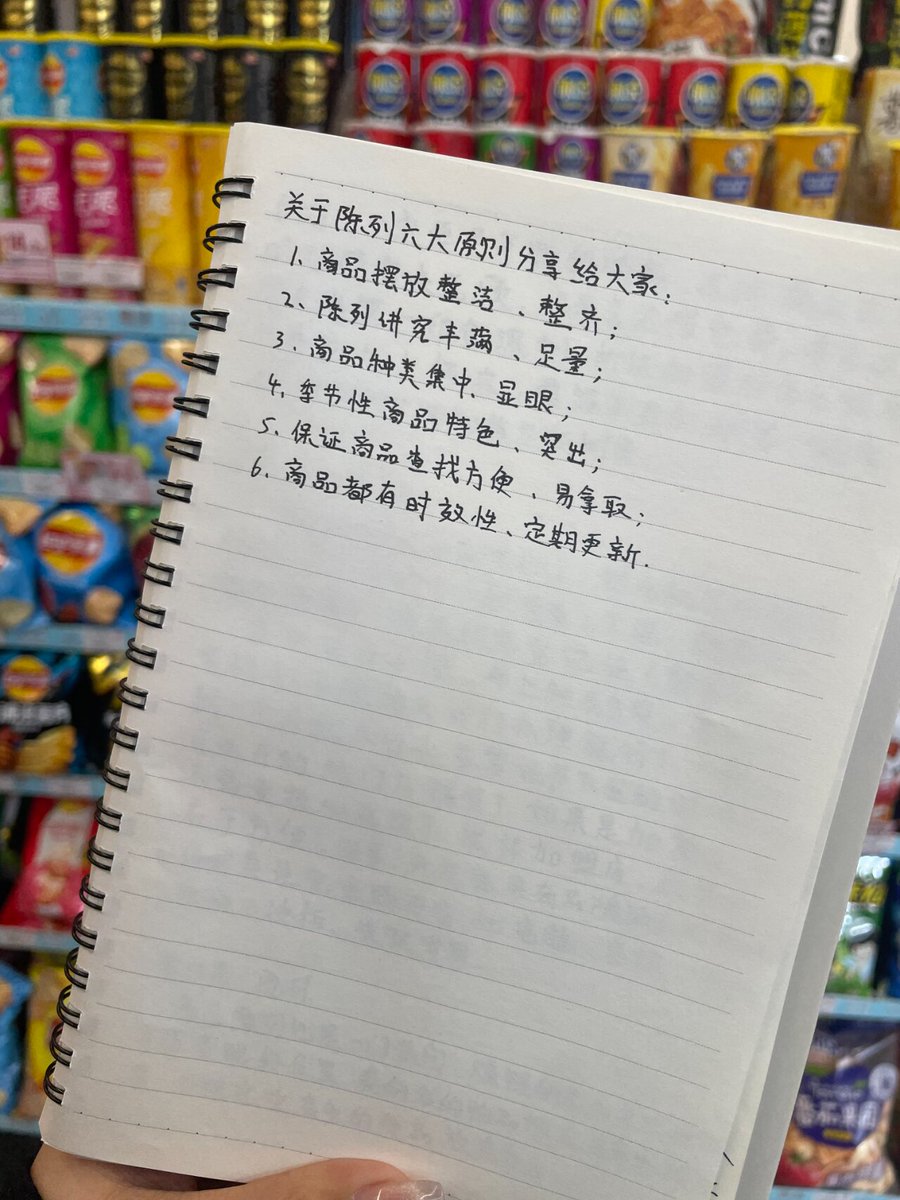 关于陈列六大原则分享给大家：
1. 商品摆放整洁、整齐；
2、陈列讲究丰满、足量；
3. 商品种类集中、显眼；
4. 季节性商品特色、突出；
5. 保证商品查找方便、易拿取；
6. 商品都有时效性、定期更新.